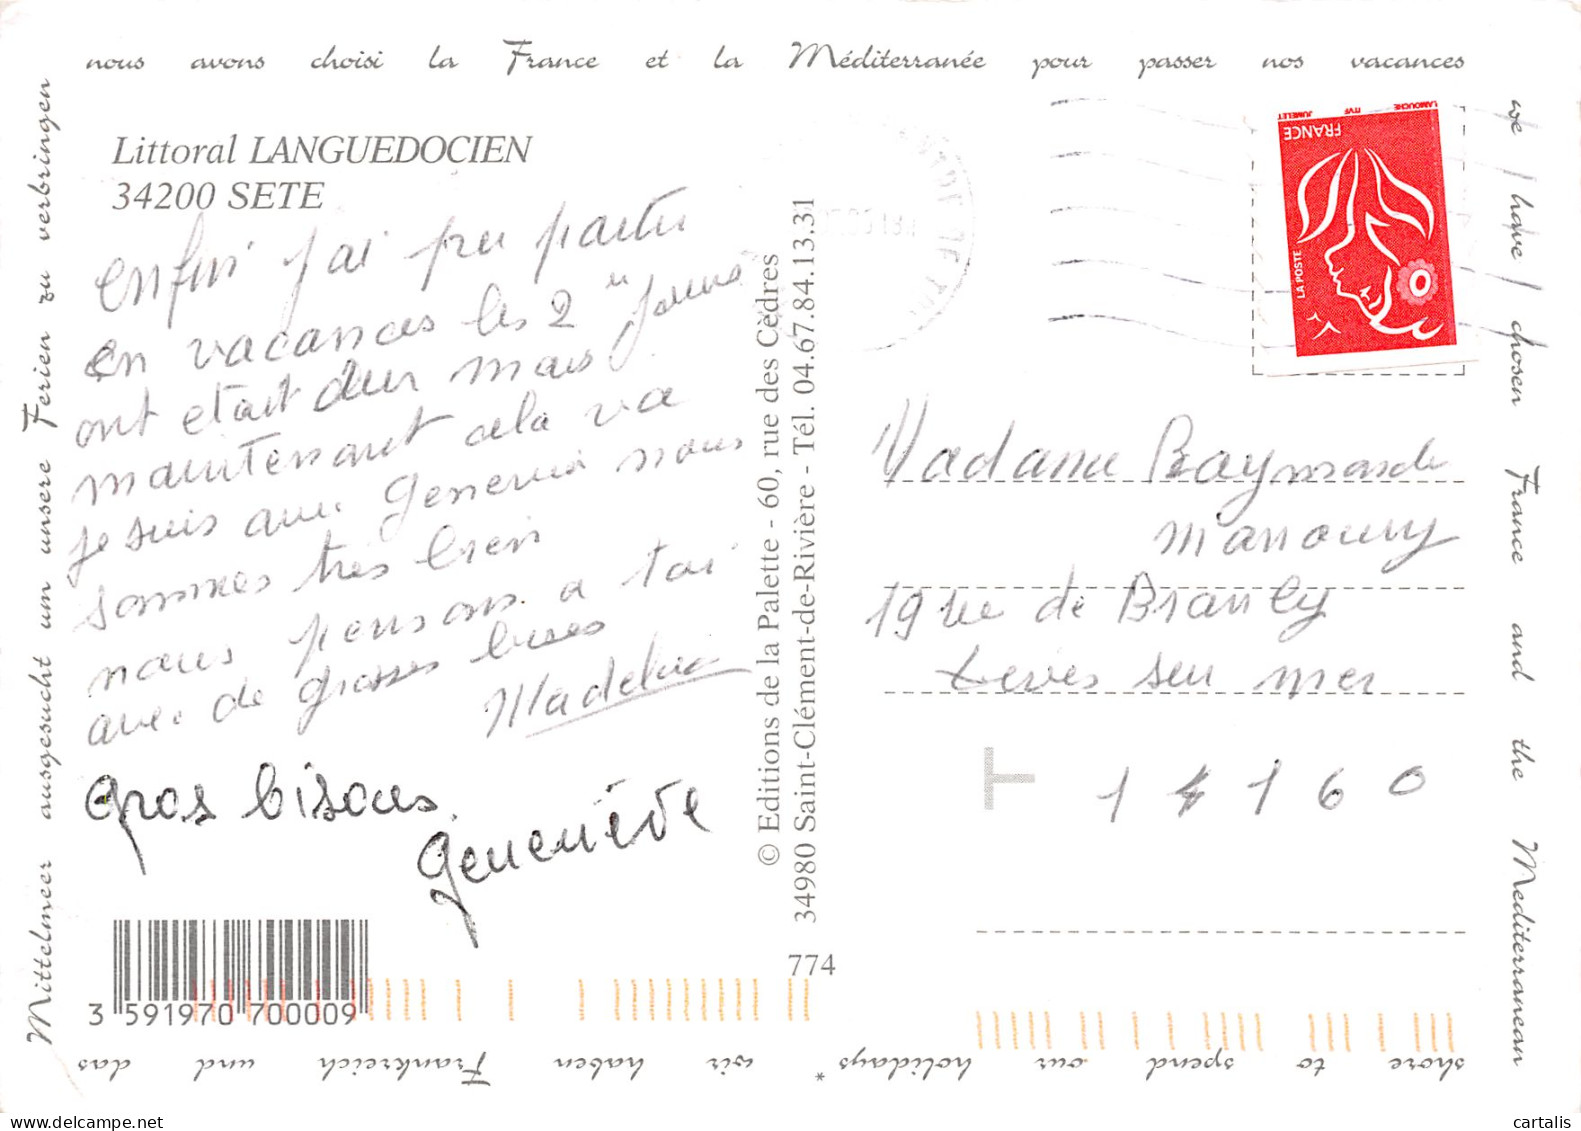 nous avons choisi la France et la Méditerranée pour passer nos vacances
we / have / chosen France and the Mediterranean
shore to spend our holidays *
wir haben Frankreich und das
Mittelmeer ausgesucht um unsere Ferien zu verbringen
Littoral LANGUEDOCIEN
34200 SETE
enfin j'ai pu partir
en vacances les 2 "
ont etait dur mais
maintenant cela va
je suis avec Genevie nous
sommes très bien
nous pensons a toi
avec de grosses bises
Madeleine
Gros bisous
Geneviève
© Editions de la Palette - 60, rue des Cèdres
34980 Saint-Clément-de-Rivière - Tél. 04.67.84.13.31
774
3 591970 700009
LAMOUCHE ITVF JUMELET
FRANCE
LA POSTE
Madame Raymonde
Manoury
19 rue de Branly
Dives seu mer
14160
T
cartalis